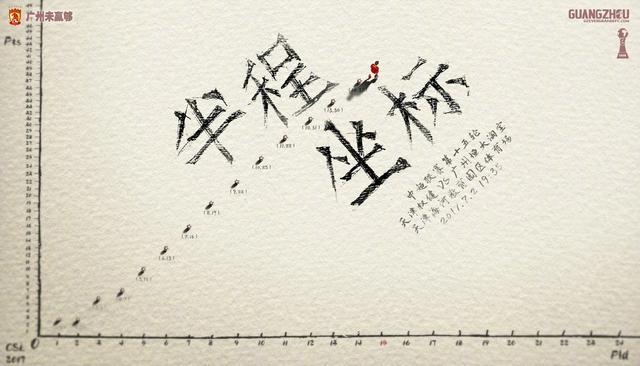 广州未赢够
GUANGZHOU
Pts
半程
坐标
中超联赛第十五轮
天津权健 VS 广州恒大淘宝
天津海河教育园区体育场
2017.7.2 19:35
(13,30)
(9,22)
(8,19)
(7,16)
(6,13)
0 1 2 3 4 5 6 7 8 9 10 11 12 13 14 15 16 17 18 19 20 21 22 23 24
CSL
2017
Pld